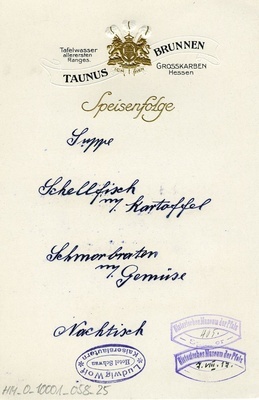 Tafelwasser
allerersten
Ranges.
TAUNUS BRUNNEN
GROSSKARBEN
Hessen
Speisenfolge
Suppe
Schellfisch
m/. Kartoffel
Schmorbraten
m/. Gemüse
Nachtisch
Ludwig Wolf
Hotel Schwan
Kaiserslautern
Historisches Museum der Pfalz
Historisches Museum der Pfalz
HM_0_10001_058_25